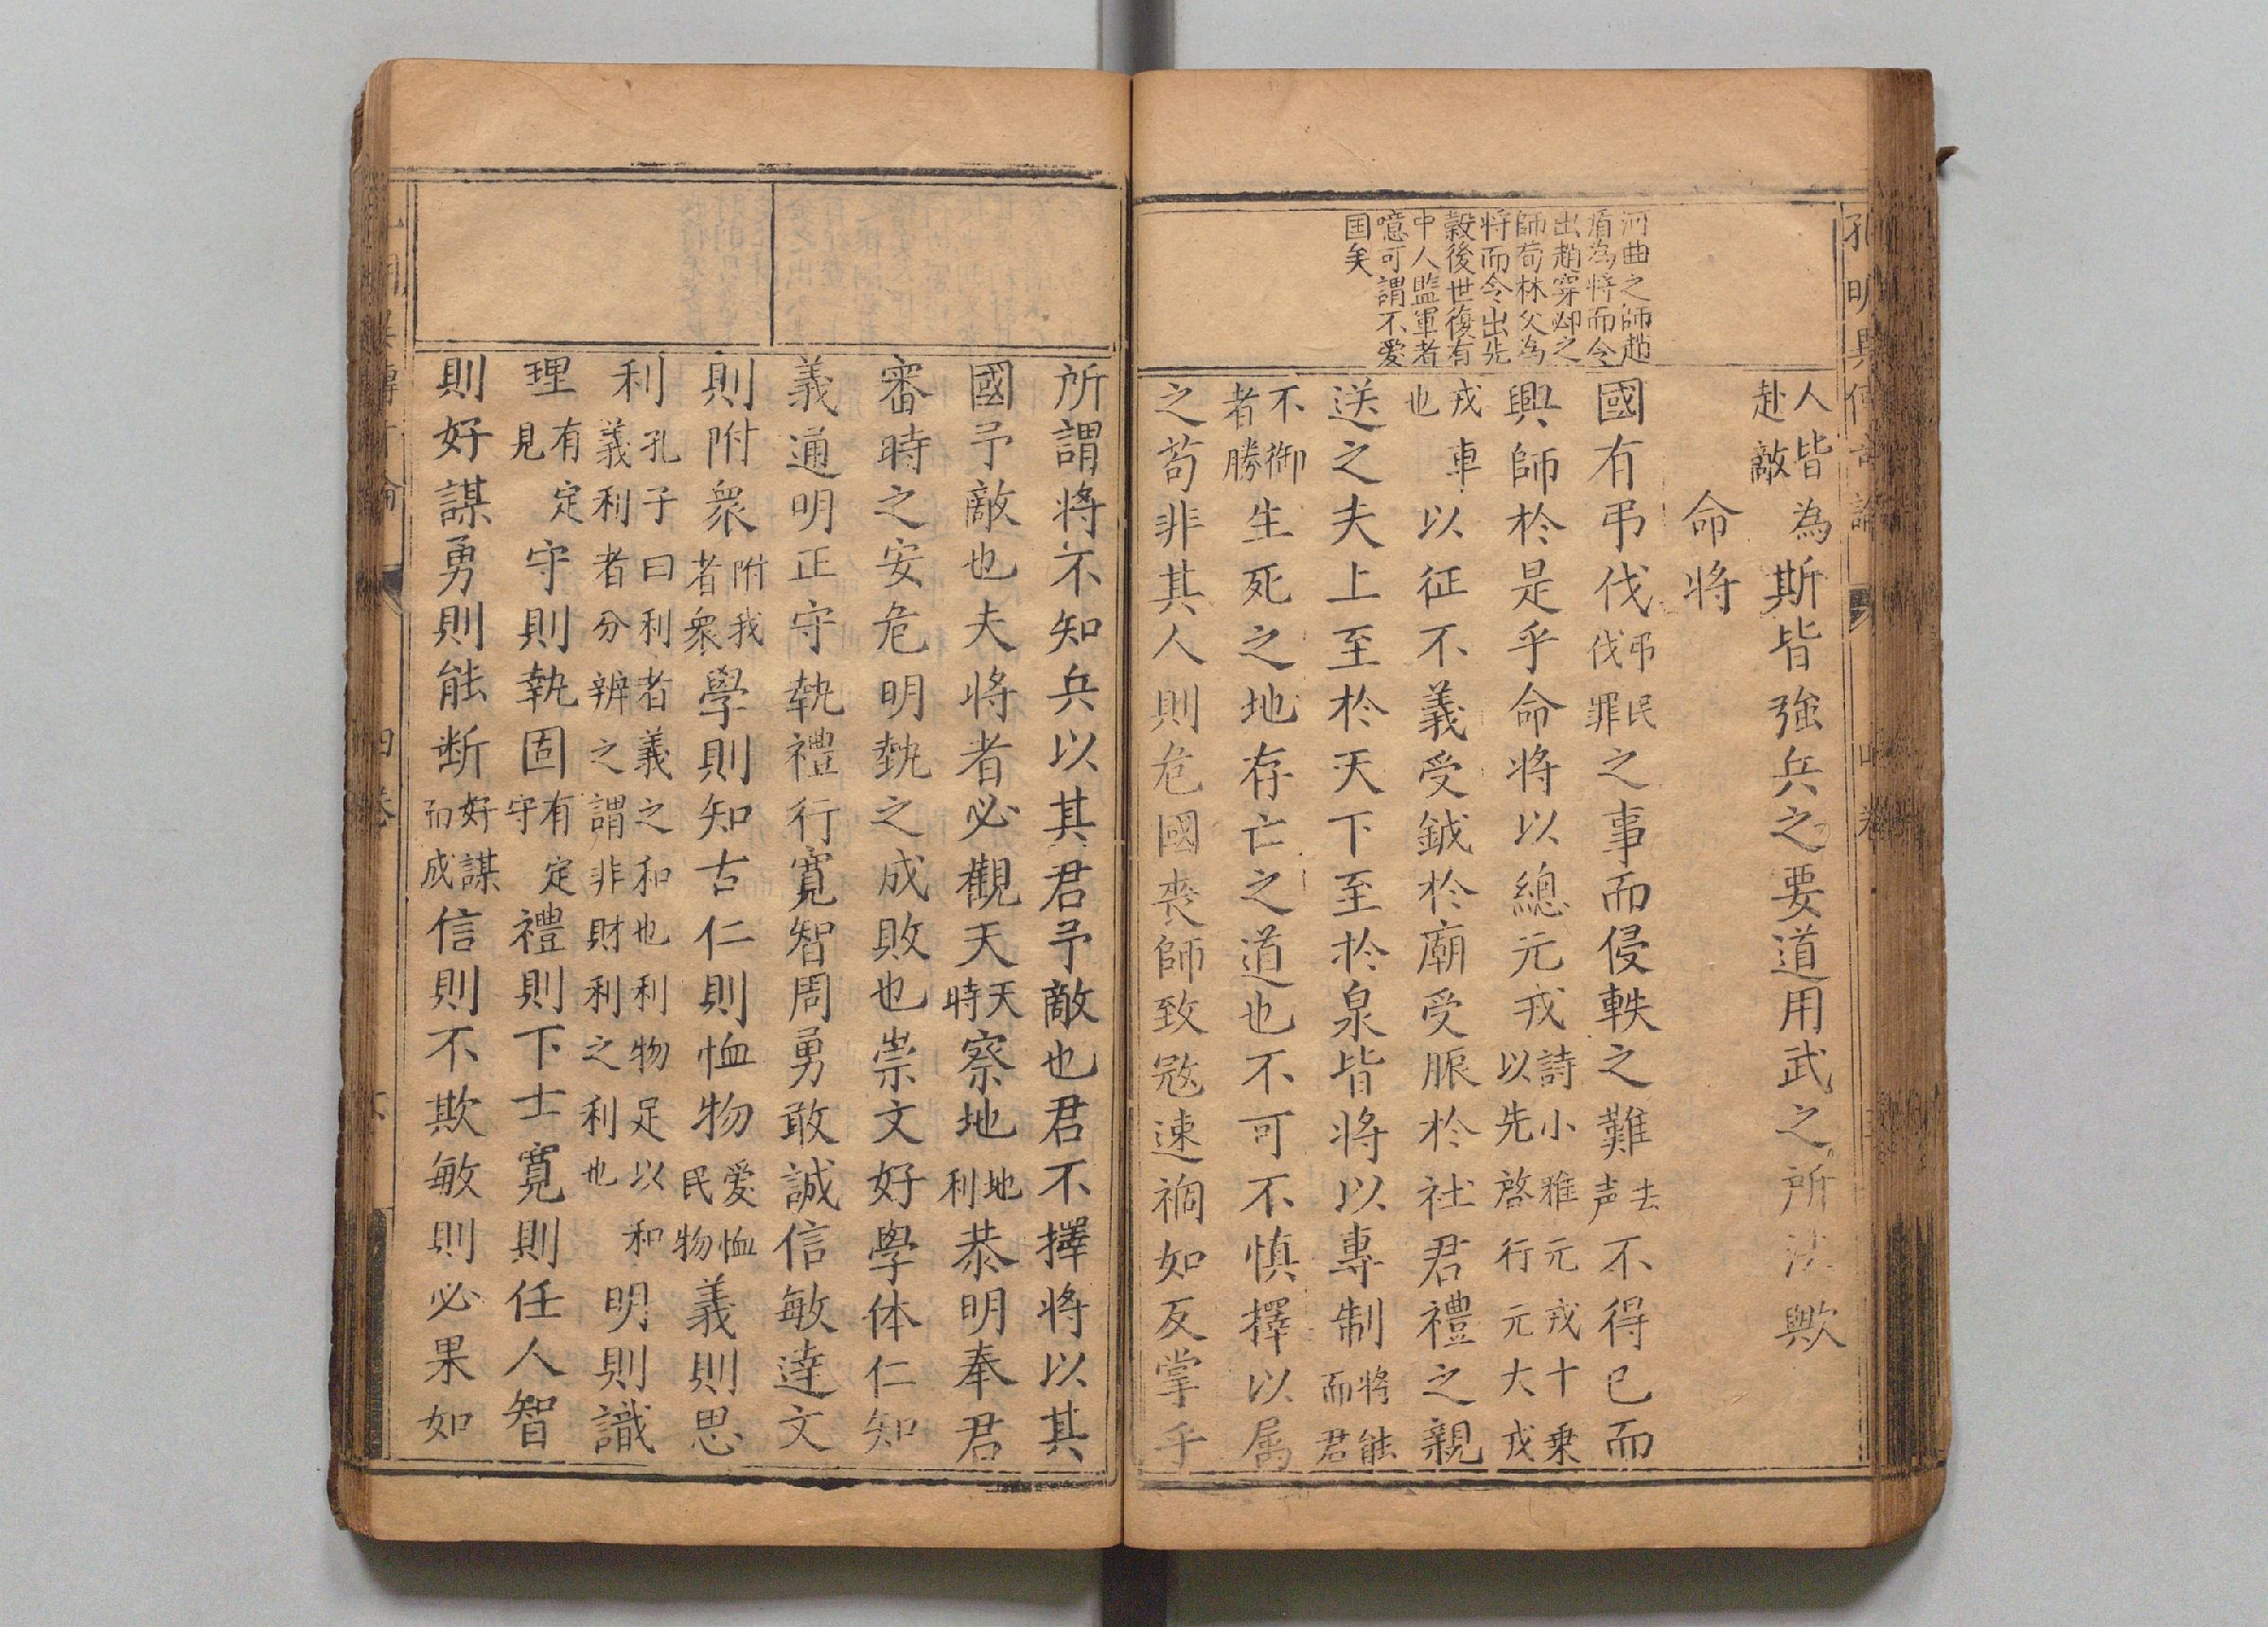 河曲之師趙
盾為將而令
出趙穿邲之
師荀林父為
將而令出先
縠後世復有
中人監軍者
噫可謂不愛
国矣
人皆為
赴敵
斯皆強兵之要道用武之所法歟
命将
國有弔伐弔民伐罪之事而侵軼之難去声不得已而
興師於是乎命将以總元戎詩小雅元戎十乗以先啓行元大戎
戎車也以征不義受鉞於廟受脤於社君禮之親
送之夫上至於天下至於泉皆将以專制将能而君
不御者勝生死之地存亡之道也不可不慎擇以属
之苟非其人則危國喪師致宼速禍如反掌乎
所謂将不知兵以其君予敵也君不擇将以其
國予敵也夫将者必觀天天時察地地利恭明奉君
審時之安危明埶之成敗也崇文好學体仁知
義通明正守執禮行寛智周勇敢誠信敏逹文
則附衆附我者衆學則知古仁則恤物愛恤民物義則思
利孔子曰利者義之和也利物足以和義利者分辨之謂非財利之利也明則識
理有定見守則執固有定守禮則下士寛則任人智
則好謀勇則能断好謀而成信則不欺敏則必果如